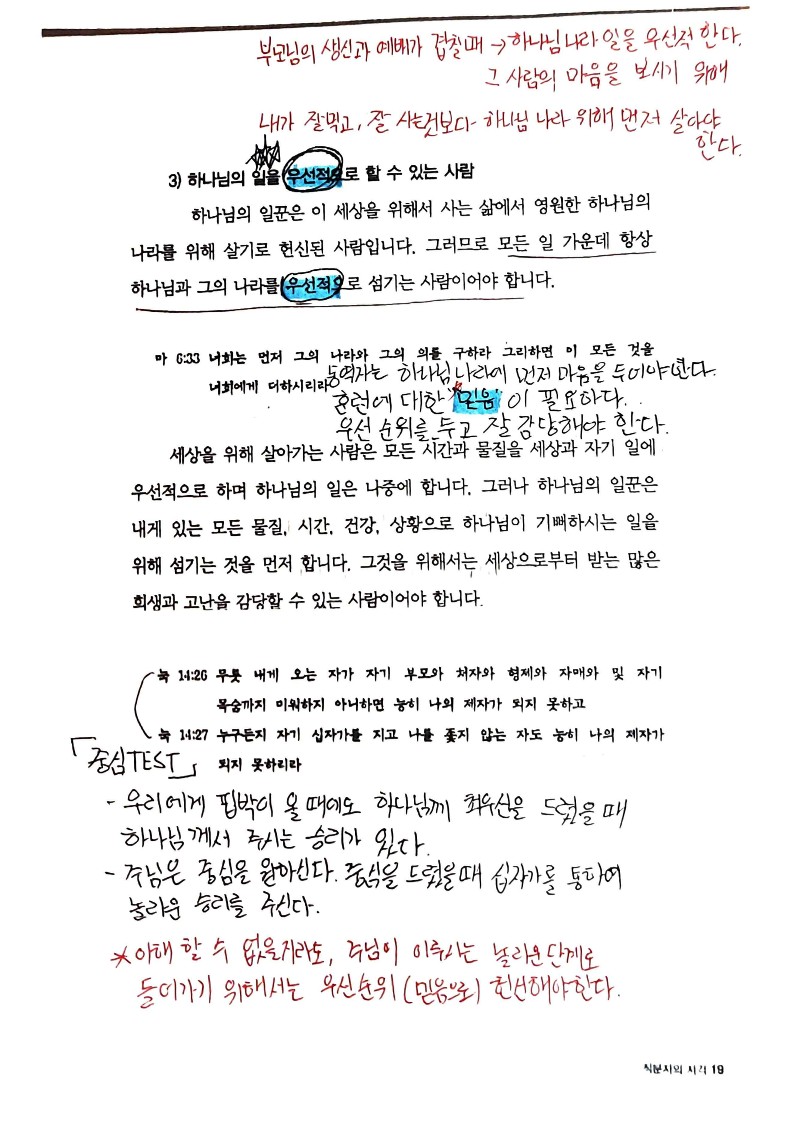 부모님의 생신과 예배가 겹칠때 → 하나님나라 일을 우선적 한다.
그 사람의 마음을 보시기 위해
내가 잘먹고, 잘 사는것보다 하나님 나라 위해 먼저 살아야
한다.
3) 하나님의 일을 우선적으로 할 수 있는 사람
하나님의 일꾼은 이 세상을 위해서 사는 삶에서 영원한 하나님의
나라를 위해 살기로 헌신된 사람입니다. 그러므로 모든 일 가운데 항상
하나님과 그의 나라를 우선적으로 섬기는 사람이어야 합니다.
마 6:33 너희는 먼저 그의 나라와 그의 의를 구하라 그리하면 이 모든 것을
너희에게 더하시리라
동역자는 하나님 나라에 먼저 마음을 두어야 한다.
훈련에 대한 "믿음"이 필요하다.
우선 순위를 두고 잘 감당해야 한다.
세상을 위해 살아가는 사람은 모든 시간과 물질을 세상과 자기 일에
우선적으로 하며 하나님의 일은 나중에 합니다. 그러나 하나님의 일꾼은
내게 있는 모든 물질, 시간, 건강, 상황으로 하나님이 기뻐하시는 일을
위해 섬기는 것을 먼저 합니다. 그것을 위해서는 세상으로부터 받는 많은
희생과 고난을 감당할 수 있는 사람이어야 합니다.
눅 14:26 무릇 내게 오는 자가 자기 부모와 처자와 형제와 자매와 및 자기
목숨까지 미워하지 아니하면 능히 나의 제자가 되지 못하고
눅 14:27 누구든지 자기 십자가를 지고 나를 좇지 않는 자도 능히 나의 제자가
되지 못하리라
「중심TEST」
- 우리에게 핍박이 올 때에도 하나님께 최우선을 드렸을 때
하나님께서 주시는 승리가 있다.
- 주님은 중심을 원하신다. 중심을 드렸을때 십자가를 통하여
놀라운 승리를 주신다.
*이해 할 수 없을지라도, 주님이 이루시는 놀라운 단계로
들어가기 위해서는 우선순위 (믿음으로) 헌신해야한다.
19